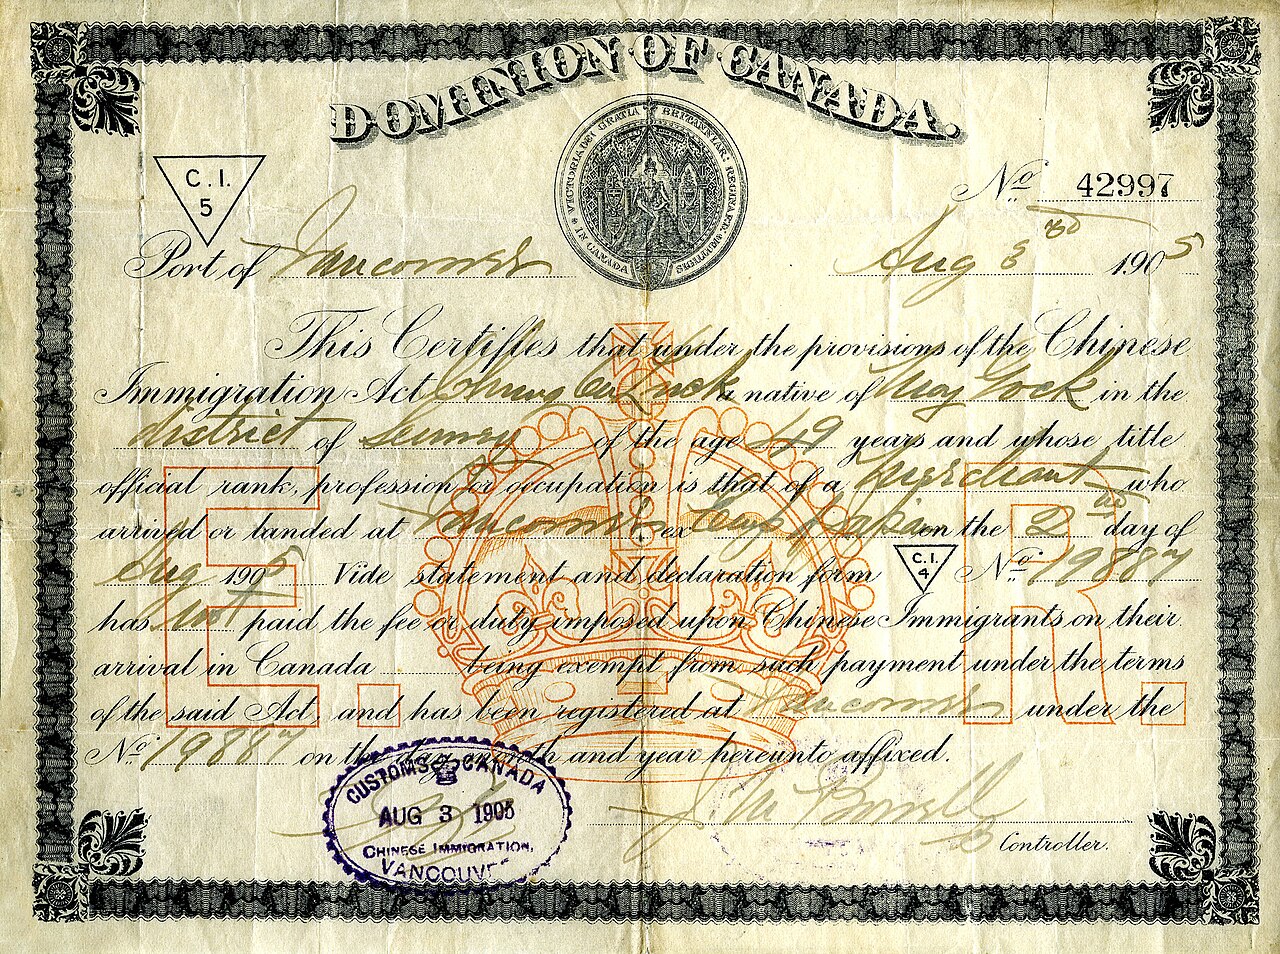 DOMINION OF CANADA.
VICTORIA DEI GRATIA BRITANNIAR: REGINA F.D. SIGILLUM IN CANADA
C. I.
5
No. 42997
Port of Vancouver Aug 3rd 1905
This Certifies that under the provisions of the Chinese
Immigration Act Chung native of May Gock in the
district of Sunney of the age 49 years and whose title
official rank, profession or occupation is that of a Merchant who
arrived or landed at Vancouver ex on the 2nd day of
Aug 1905 Vide statement and declaration form C.I. 4 No. 19887
has not paid the fee or duty imposed upon Chinese Immigrants on their
arrival in Canada being exempt from such payment under the terms
of the said Act, and has been registered at Vancouver under the
No. 19887 on the day, month and year hereunto affixed.
E. R.
CUSTOMS CANADA
AUG 3 1905
CHINESE IMMIGRATION,
VANCOUVER
J. M. Bowell
Controller.